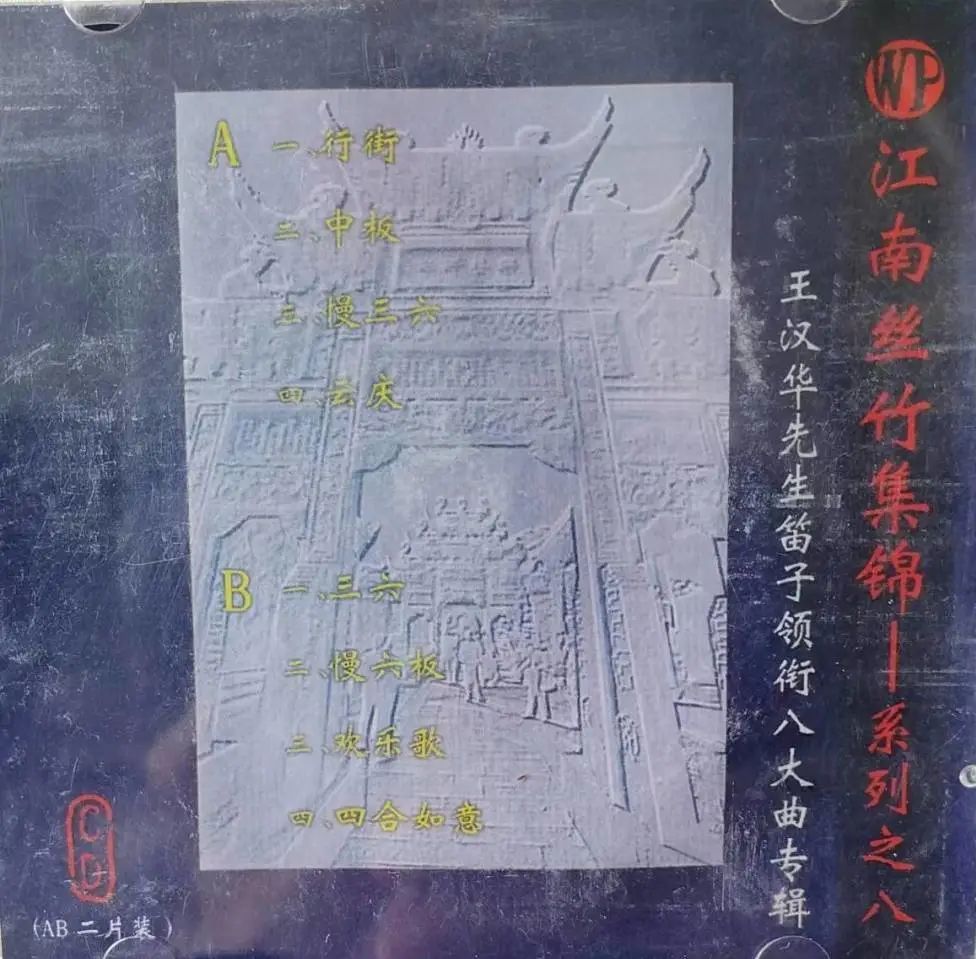 WP
江南丝竹集锦—系列之八
王汉华先生笛子领衔八大曲专辑
A
一、行街
二、中板
三、慢三六
四、云庆
B
一、三六
二、慢六板
三、欢乐歌
四、四合如意
CD
(AB二片装)